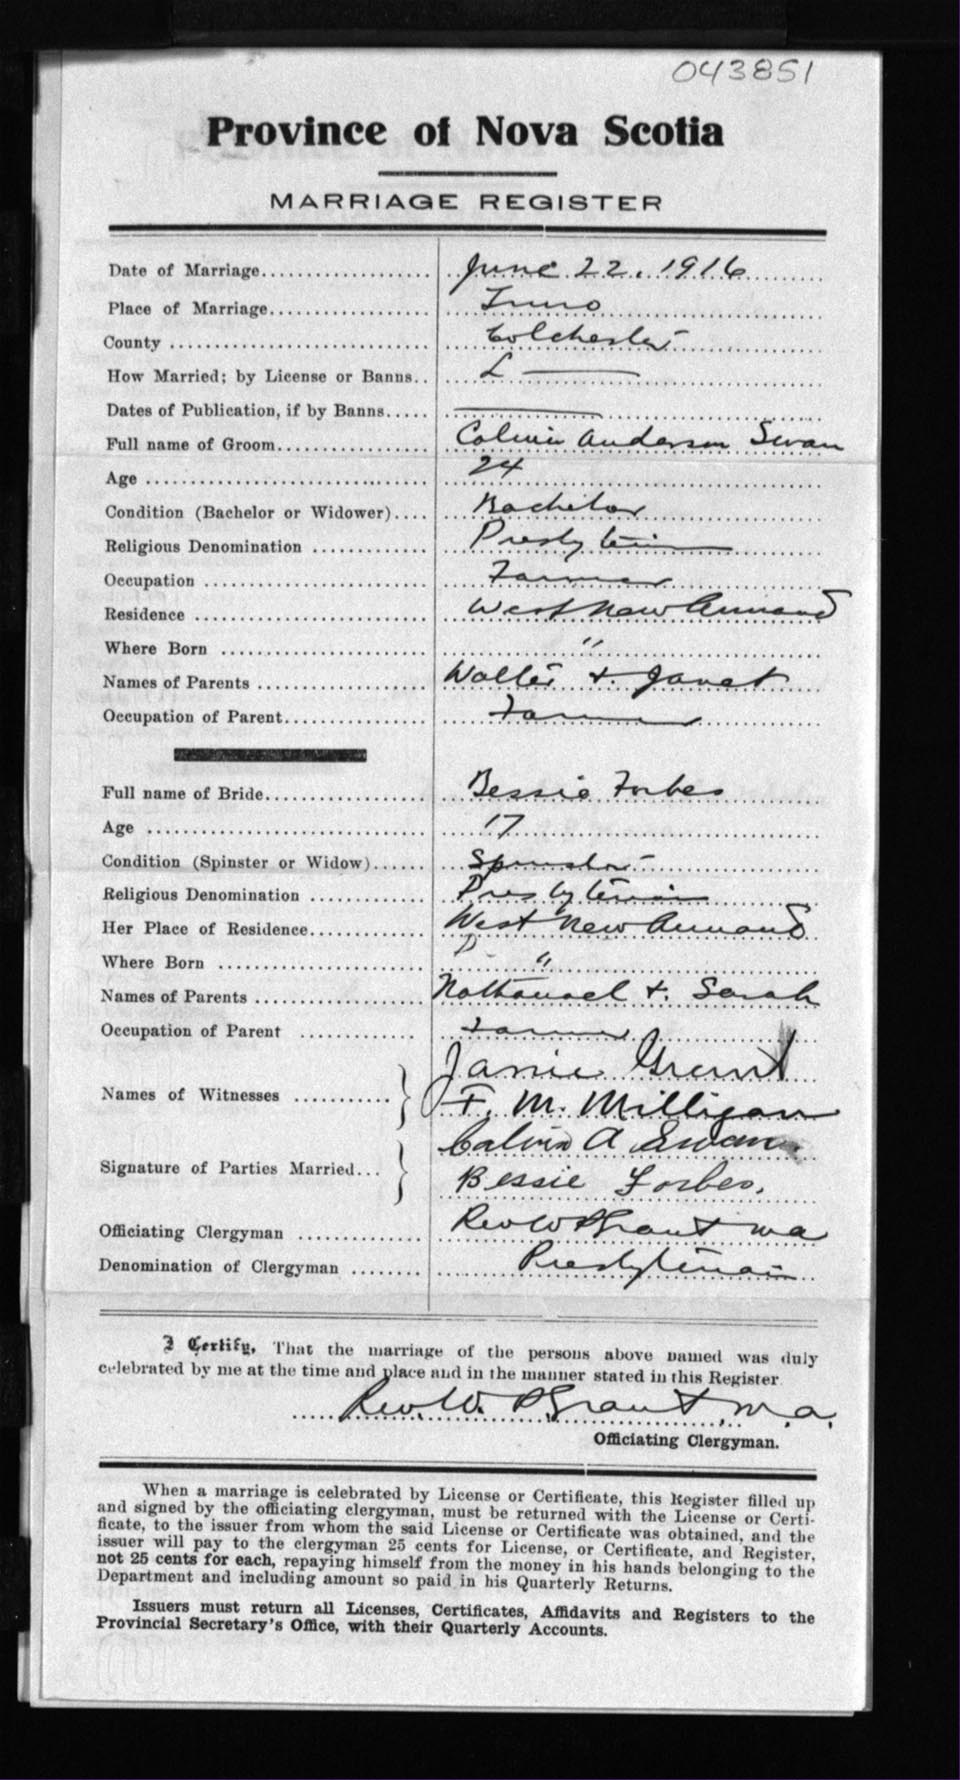 043851
Province of Nova Scotia
MARRIAGE REGISTER
Date of Marriage.................... June 22, 1916
Place of Marriage................... Truro
County ............................. Colchester
How Married; by License or Banns.. L ———
Dates of Publication, if by Banns..... ———
Full name of Groom................. Calvin Anderson Swan
Age ............................... 24
Condition (Bachelor or Widower).... Bachelor
Religious Denomination ............. Presbyterian
Occupation ......................... Farmer
Residence .......................... West New Annand
Where Born ........................ "
Names of Parents ................... Walter + Janet
Occupation of Parent................ Farmer
Full name of Bride.................. Bessie Forbes
Age ............................... 17
Condition (Spinster or Widow)...... Spinster
Religious Denomination ............. Presbyterian
Her Place of Residence............. West New Annand
Where Born ........................ "
Names of Parents ................... Nathanael + Sarah
Occupation of Parent ............. Farmer
Janie Grant
Names of Witnesses ........... F. M. Milligan
Calvin A Swan
Signature of Parties Married... Bessie Forbes.
Officiating Clergyman .............. Rev W P Grant M a
Denomination of Clergyman ........ Presbyterian
I Certify, That the marriage of the persons above named was duly
celebrated by me at the time and place and in the manner stated in this Register.
Rev. W. P Grant, M.a.
Officiating Clergyman.
When a marriage is celebrated by License or Certificate, this Register filled up
and signed by the officiating clergyman, must be returned with the License or Certi-
ficate, to the issuer from whom the said License or Certificate was obtained, and the
issuer will pay to the clergyman 25 cents for License, or Certificate, and Register,
not 25 cents for each, repaying himself from the money in his hands belonging to the
Department and including amount so paid in his Quarterly Returns.
Issuers must return all Licenses, Certificates, Affidavits and Registers to the
Provincial Secretary's Office, with their Quarterly Accounts.